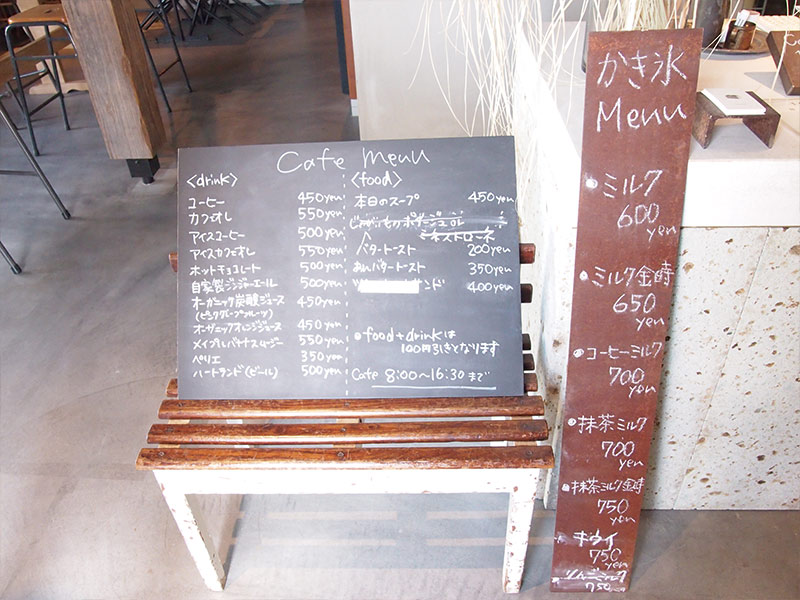 Cafe menu
<drink>
コーヒー 450yen
カフェオレ 550yen
アイスコーヒー 500yen
アイスカフェオレ 550yen
ホットチョコレート 500yen
自家製ジンジャーエール 500yen
オーガニック炭酸ジュース 450yen
(ピンクグレープフルーツ)
オーガニックオレンジジュース 450yen
メイプルバナナスムージー 550yen
ペリエ 350yen
ハートランド(ビール) 500yen
<food>
本日のスープ 450yen
じゃがいものポタージュ or
ミネストローネ
バタートースト 200yen
あんバタートースト 350yen
サンド 400yen
food+drinkは
100円引きとなります
Cafe 8:00〜16:30まで
かき氷
Menu
ミルク
600
yen
ミルク金時
650
yen
コーヒーミルク
700
yen
抹茶ミルク
700
yen
抹茶ミルク金時
750
yen
キウイ
750
yen
りんごミルク
750